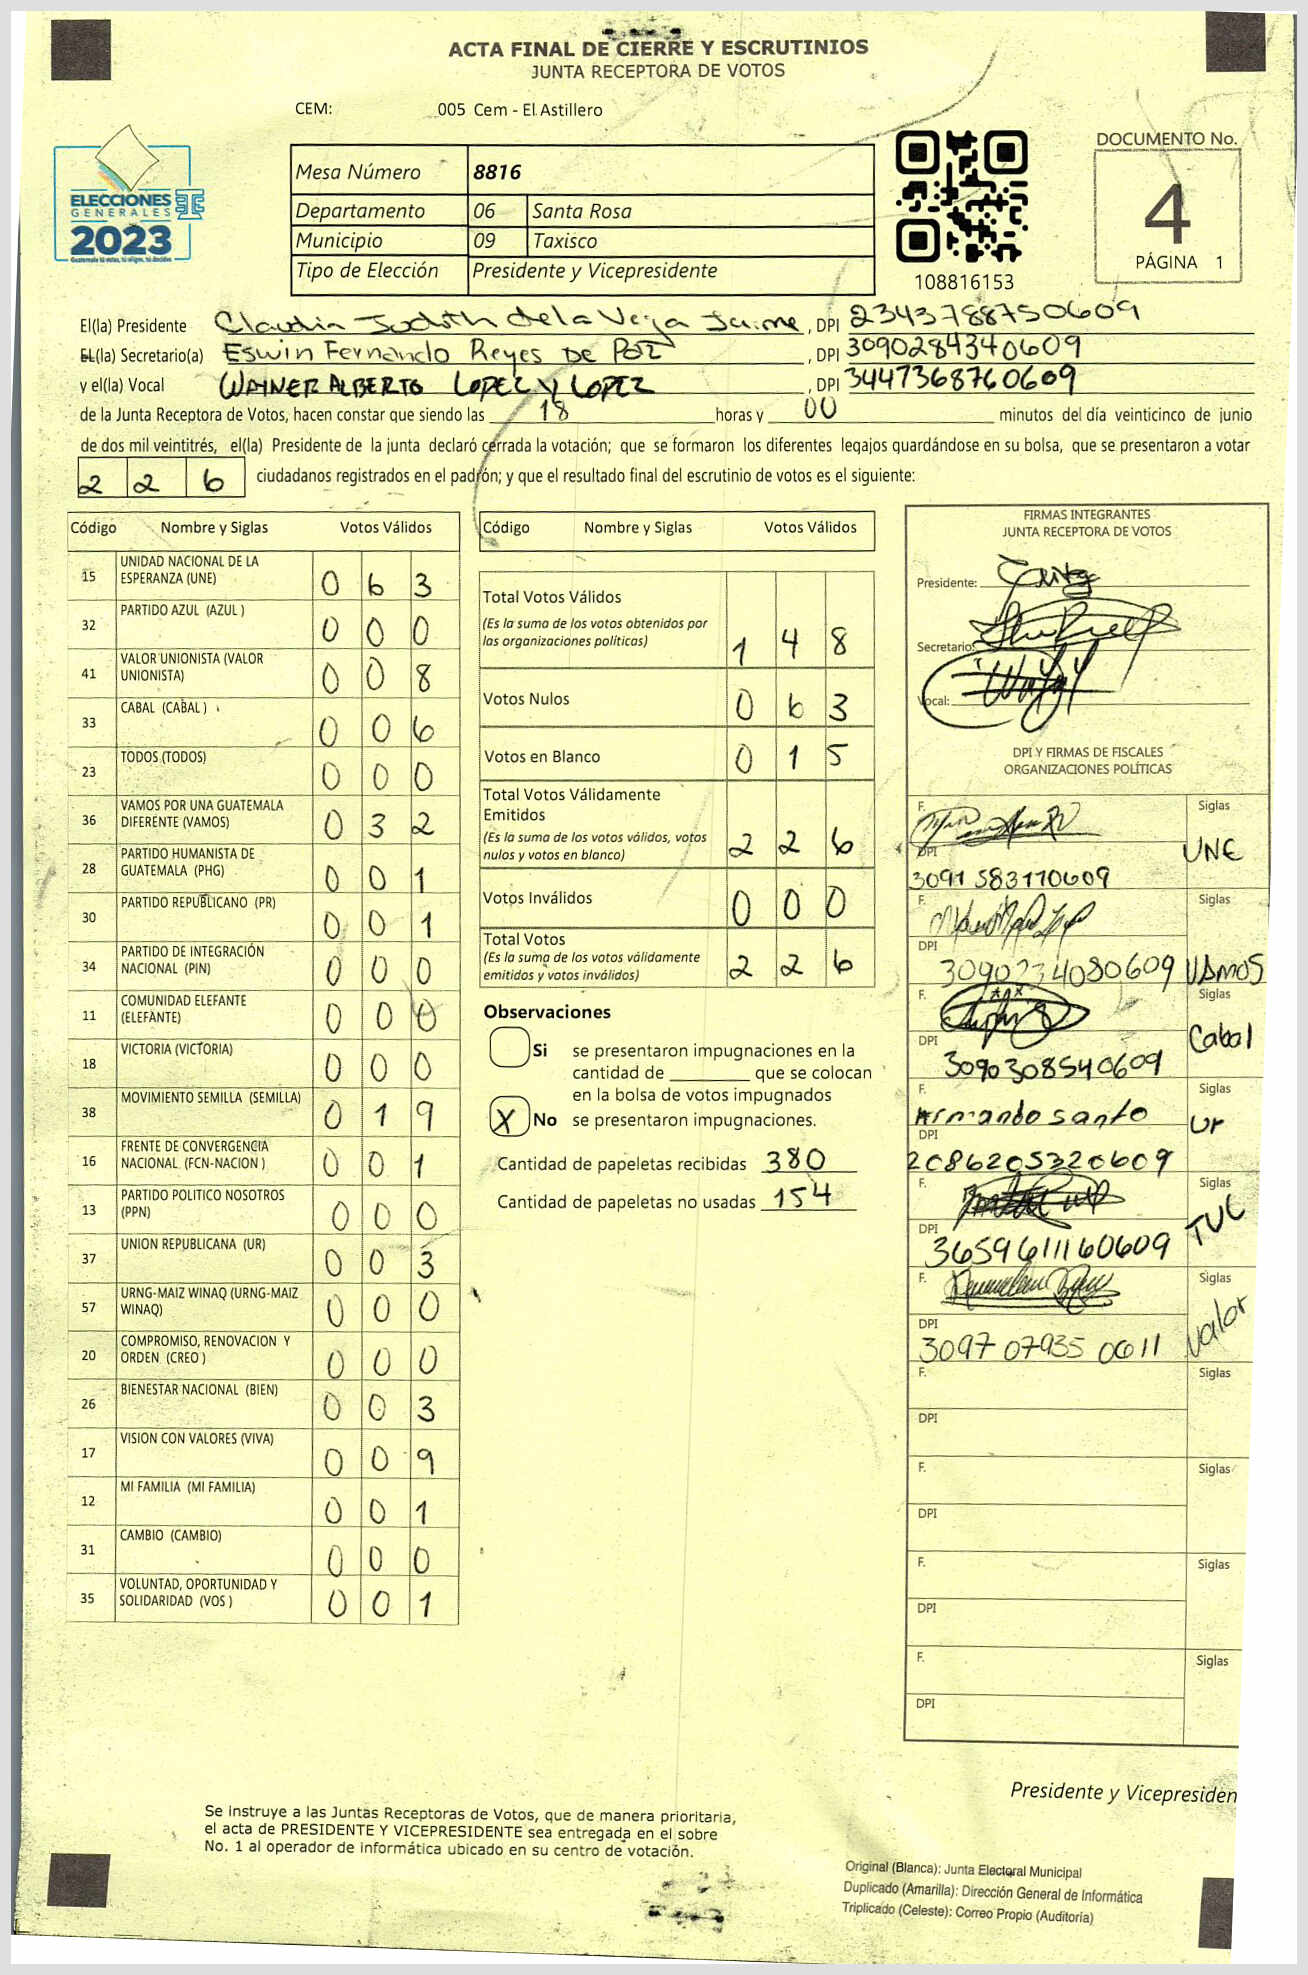 ACTA FINAL DE CIERRE Y ESCRUTINIOS
JUNTA RECEPTORA DE VOTOS
CEM: 005 Cem - El Astillero
ELECCIONES
GENERALES
2023
Guatemala tú votas, tú eliges, tú decides
Mesa Número 8816
Departamento 06 Santa Rosa
Municipio 09 Taxisco
Tipo de Elección Presidente y Vicepresidente
108816153
DOCUMENTO No.
4
PÁGINA 1
El(la) Presidente Claudia Judith de la Vega Jaime, DPI 2343788750609
EL(la) Secretario(a) Eswin Fernando Reyes De Paz, DPI 3090284340609
y el(la) Vocal WAYNER ALBERTO LOPEZ Y LOPEZ, DPI 3447368760609
de la Junta Receptora de Votos, hacen constar que siendo las 18 horas y 00 minutos del día veinticinco de junio
de dos mil veintitrés, el(la) Presidente de la junta declaró cerrada la votación; que se formaron los diferentes legajos quardándose en su bolsa, que se presentaron a votar
2 2 6 ciudadanos registrados en el padrón; y que el resultado final del escrutinio de votos es el siguiente:
Código Nombre y Siglas Votos Válidos
15 UNIDAD NACIONAL DE LA ESPERANZA (UNE) 0 6 3
32 PARTIDO AZUL (AZUL ) 0 0 0
41 VALOR UNIONISTA (VALOR UNIONISTA) 0 0 8
33 CABAL (CABAL ) 0 0 6
23 TODOS (TODOS) 0 0 0
36 VAMOS POR UNA GUATEMALA DIFERENTE (VAMOS) 0 3 2
28 PARTIDO HUMANISTA DE GUATEMALA (PHG) 0 0 1
30 PARTIDO REPUBLICANO (PR) 0 0 1
34 PARTIDO DE INTEGRACIÓN NACIONAL (PIN) 0 0 0
11 COMUNIDAD ELEFANTE (ELEFANTE) 0 0 0
18 VICTORIA (VICTORIA) 0 0 0
38 MOVIMIENTO SEMILLA (SEMILLA) 0 1 9
16 FRENTE DE CONVERGENCIA NACIONAL (FCN-NACION ) 0 0 1
13 PARTIDO POLITICO NOSOTROS (PPN) 0 0 0
37 UNION REPUBLICANA (UR) 0 0 3
57 URNG-MAIZ WINAQ (URNG-MAIZ WINAQ) 0 0 0
20 COMPROMISO, RENOVACION Y ORDEN (CREO ) 0 0 0
26 BIENESTAR NACIONAL (BIEN) 0 0 3
17 VISION CON VALORES (VIVA) 0 0 9
12 MI FAMILIA (MI FAMILIA) 0 0 1
31 CAMBIO (CAMBIO) 0 0 0
35 VOLUNTAD, OPORTUNIDAD Y SOLIDARIDAD (VOS ) 0 0 1
Código Nombre y Siglas Votos Válidos
Total Votos Válidos
(Es la suma de los votos obtenidos por
las organizaciones políticas) 1 4 8
Votos Nulos 0 6 3
Votos en Blanco 0 1 5
Total Votos Válidamente
Emitidos
(Es la suma de los votos válidos, votos
nulos y votos en blanco) 2 2 6
Votos Inválidos 0 0 0
Total Votos
(Es la suma de los votos válidamente
emitidos y votos inválidos) 2 2 6
Observaciones
Si se presentaron impugnaciones en la
cantidad de ________ que se colocan
en la bolsa de votos impugnados
X No se presentaron impugnaciones.
Cantidad de papeletas recibidas 380
Cantidad de papeletas no usadas 154
FIRMAS INTEGRANTES
JUNTA RECEPTORA DE VOTOS
Presidente:
Secretario:
Vocal:
DPI Y FIRMAS DE FISCALES
ORGANIZACIONES POLÍTICAS
F. Siglas
UNE
DPI
3091 583170609
F. Siglas
DPI
3090234080609 VAMOS
F. Siglas
Cabal
DPI
3090308540609
F. Siglas
Armando santo
Ur
DPI
2086205320609
F. Siglas
TUC
DPI
3659611160609
F. Siglas
Valor
DPI
3097 07935 0611
F. Siglas
DPI
F. Siglas
DPI
F. Siglas
DPI
F. Siglas
DPI
Presidente y Vicepresiden
Se instruye a las Juntas Receptoras de Votos, que de manera prioritaria,
el acta de PRESIDENTE Y VICEPRESIDENTE sea entregada en el sobre
No. 1 al operador de informática ubicado en su centro de votación.
Original (Blanca): Junta Electoral Municipal
Duplicado (Amarilla): Dirección General de Informática
Triplicado (Celeste): Correo Propio (Auditoría)